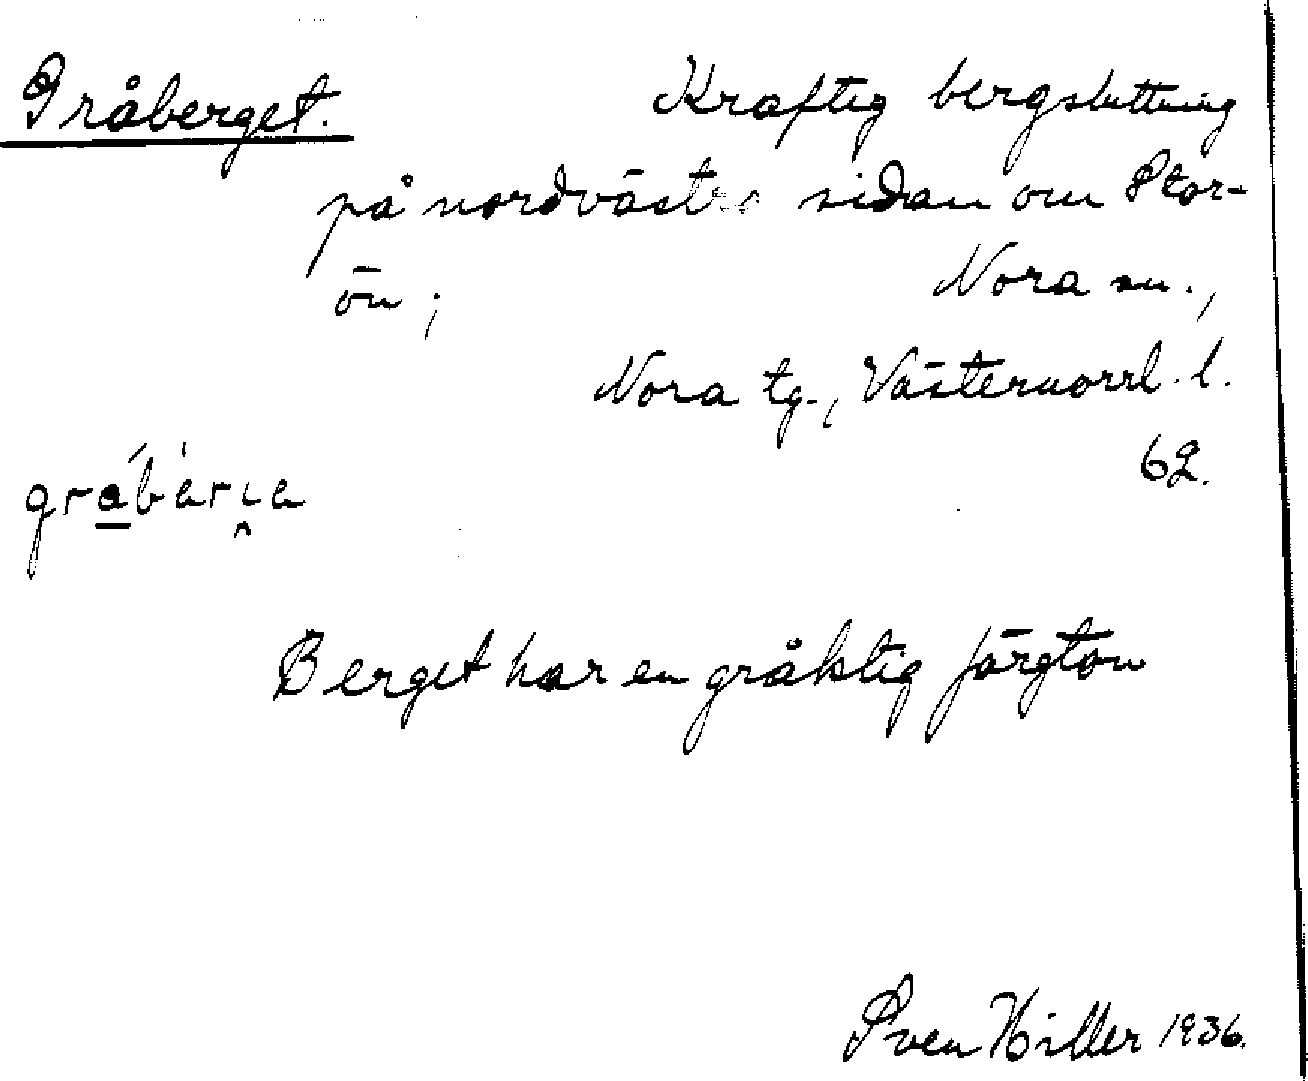 Gråberget. Kraftig bergsluttning
på nordvästra sidan om Stor-
ön; Nora sn.,
Nora tg., Västernorrl. l.
62.
Berget har en gråktig färgton
Sven Hiller 1936.